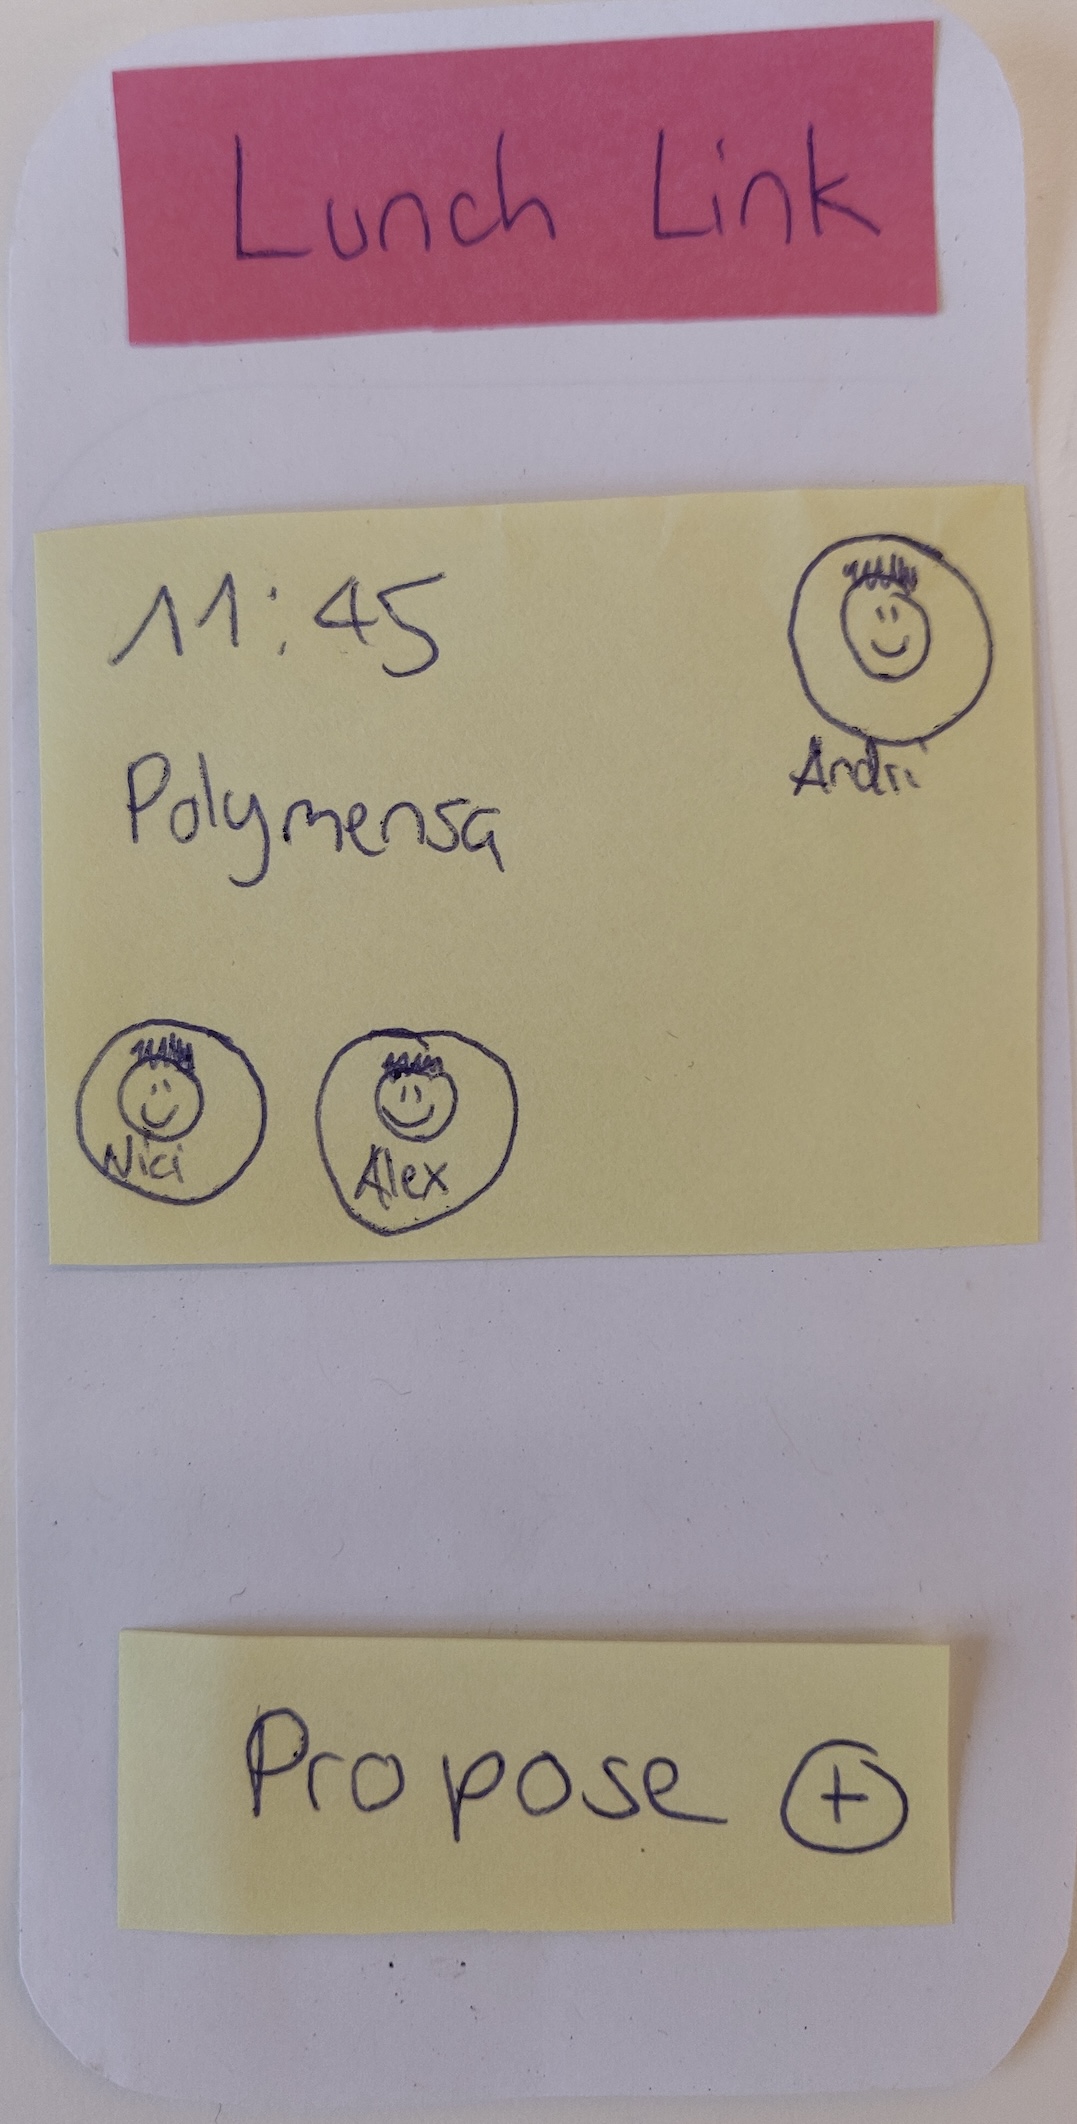 Lunch Link
11:45
Andri
Polymensa
Nici
Alex
Propose +